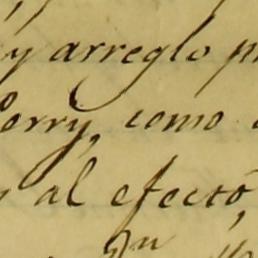 y arreglo
Perry, como
al efectó,